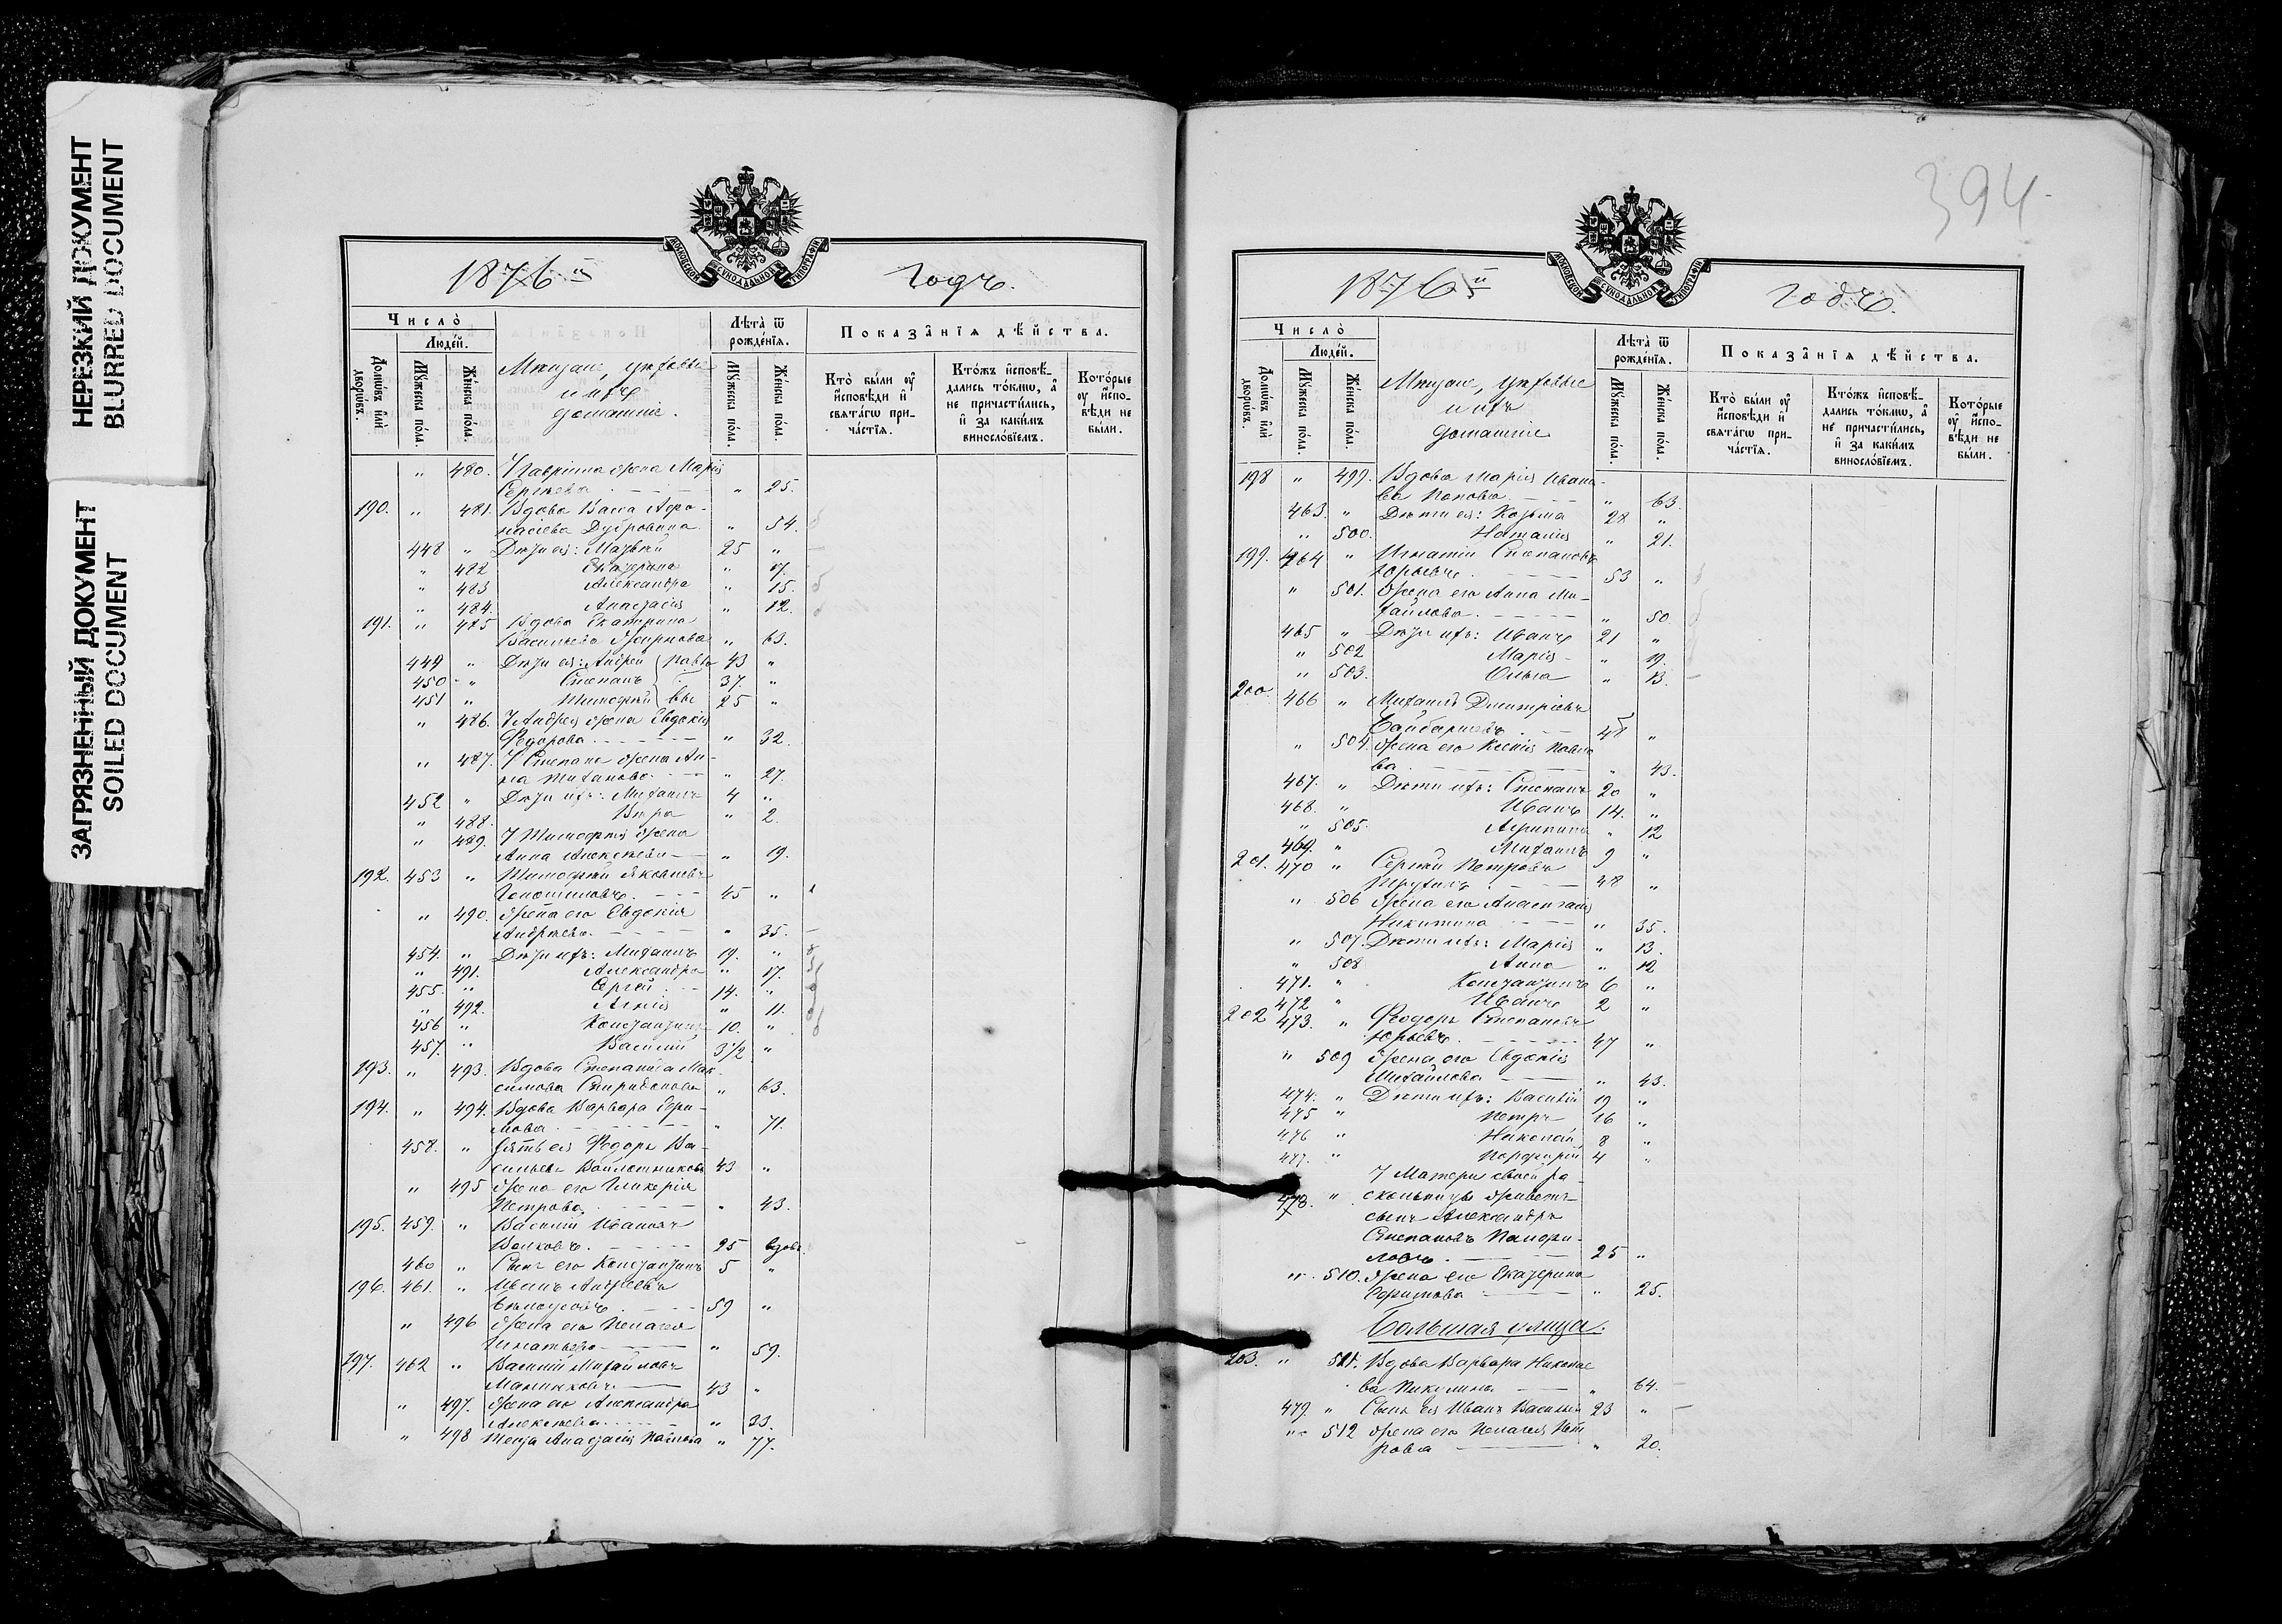 НЕРЕЗКИЙ ДОКУМЕНТ
BLURRED DOCUMENT
ЗАГРЯЗНЕННЫЙ ДОКУМЕНТ
SOILED DOCUMENT
МОСКОВСКОЙ СѴНОДАЛЬНОЙ ТИПОГРАФІИ
1876 й годъ.
Число̀
Людей.
Домѡвъ и҆лѝ дворѡвъ.
Мꙋжеска по́ла.
Же́неска по́ла.
Мѣщане, цеховые
и ихъ
домашніе.
Лѣта̀ ѿ рожде́нїѧ.
Мꙋжеска по́ла.
Же́неска по́ла.
Показа̑нїѧ дѣ́йства.
Кто̀ бы́ли ᲂу҆ и҆сповѣди и҆ свѧта́гѡ прича́стїѧ.
Кто́жъ и҆сповѣ́дались то́кмѡ, а҆ не причасти́лись, и҆ за каки́мъ винослóвїемъ.
Кото́рые ᲂу҆ и҆сповѣди не бы́ли.
" 480. жена Марія
Сергѣева " 25.
190. " 481. Вдова Васса Афа-
насіева Дубровина " 54.
448 " Дѣти ея: Матвѣй 25 "
" 482 Екатерина " 17.
" 483 Александра " 15.
" 484. Анастасія " 12.
191. " 485 Вдова Екатерина
Васильева " 63.
449 " Дѣти ея: Андрей Павло 43 "
450 " Степанъ 37. "
451 " Тимофей вы 25 "
" 486. У Андрея жена Евдокія
Федорова " 32.
" 487. У Степана жена Ан-
на Михайлова " 27.
452 " Дѣти ихъ: Михаилъ 4 "
" 488. Вѣра " 2.
" 489. У Тимофея жена
Анна Алексѣева " 19.
192. 453 " Тимофей Яковлевъ
45 "
" 490. Жена его Евдокія
Андреева " 35.
454. " Дѣти ихъ: Михаилъ 19. "
" 491. Александра " 17.
455. " Сергей 14. "
" 492. Агнія " 11.
456 " Константинъ 10. "
457. " Василій 3½ "
193. " 493. Вдова Степанида Мак-
симова Спиридонова " 63.
194. " 494. Вдова Варвара
мова " 71.
458. " Зять ея Федоръ Ва-
сильевъ Войлошниковъ 43 "
" 495 Жена его Гликерія
Петрова " 43.
195. 459. " Василій Ивановъ
Волковъ. 25 вдовъ
460 " Сынъ его Константинъ 5 "
196. 461. " Иванъ Андреевъ
Бѣлоусовъ 59 "
" 496 Жена его Пелагея
Игнатьева " 59.
197. 462 " Василій Михайловъ
43 "
" 497. Жена его Александра
Алексѣева " 33.
" 498 Теща Анастасія Павлова " 77.
394
МОСКОВСКОЙ СѴНОДАЛЬНОЙ ТИПОГРАФІИ
1876 й годъ.
Число̀
Людей.
Домѡвъ и҆лѝ дворѡвъ.
Мꙋжеска по́ла.
Же́неска по́ла.
Мѣщане, цеховые
и ихъ
домашніе
Лѣта̀ ѿ рожде́нїѧ.
Мꙋжеска по́ла.
Же́неска по́ла.
Показа̑нїѧ дѣ́йства.
Кто̀ бы́ли ᲂу҆ и҆сповѣди и҆ свѧта́гѡ прича́стїѧ.
Кто́жъ и҆сповѣ́дались то́кмѡ, а҆ не причасти́лись, и҆ за каки́мъ винослóвїемъ.
Кото́рые ᲂу҆ и҆сповѣди не бы́ли.
198 " 499. Вдова Марія Ивано-
ва Попова " 63.
463. " Дѣти ея: Козьма 28 "
" 500. Наталія " 21.
199. 464 " Игнатій Степановъ
Юрьевъ 53 "
" 501. Жена его Анна Ми-
хайлова " 50
465 " Дѣти ихъ: Иванъ 21 "
" 502 Марія " 19.
" 503. Ольга " 13.
200. 466 " Михаилъ Дмитріевъ
"
" 504 Жена его Ксенія Павло
ва " 43.
467. " Дѣти ихъ: Степанъ 20 "
468. " Иванъ 14. "
" 505. Агрипина " 12
469. " Михаилъ 9 "
201. 470 " Сергѣй Петровъ
48 "
" 506 Жена его Анастасія
Никитина " 35.
" 507. Дѣти ихъ: Марія " 13.
" 508 Анна " 12
471. " Константинъ 6 "
472 " Иванъ 2 "
202 473. " Федоръ Степановъ
Юрьевъ. 47 "
" 509 Жена его Евдокія
Михайлова " 43.
474. " Дѣти ихъ: Василій 19 "
475 " Петръ 16 "
476 " Николай 8 "
477. " Порфирій 4 "
У Матери своей ра-
478. " скольницы живетъ
сынъ Александръ
Степановъ Панфи-
ловъ 25 "
" 510. Жена его Екатерина
" 25.
Большая улица.
203. " 511. Вдова Варвара Николае
ва Никулина " 64.
479. " Сынъ ея Иванъ Василій 23 "
" 512 Жена его Пелагея Пет
рова " 20.